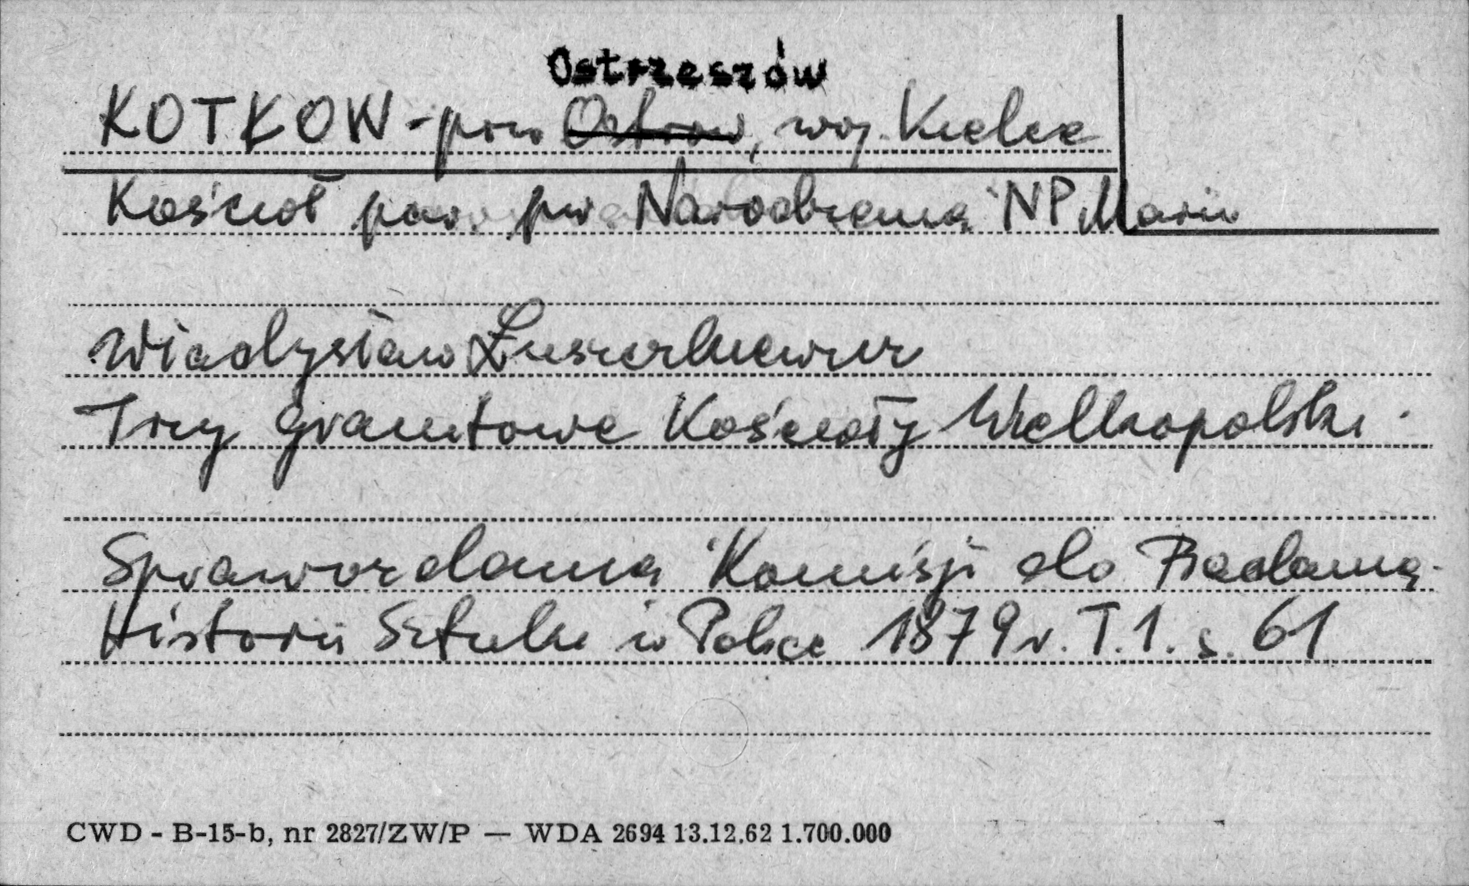 Ostrzeszów
KOTŁOW - pow Ostrow, woj. Kielce
Kościoł par. pw Narodzenia NP Marii
Władysław Łuszczkiewicz
Trzy granitowe Kościoły Wielkopolski.
Sprawozdania Komisji do Badania
Historii Sztuki w Polsce 1879 r. T.1. s. 61
CWD - B-15-b, nr 2827/ZW/P — WDA 2694 13.12.62 1.700.000